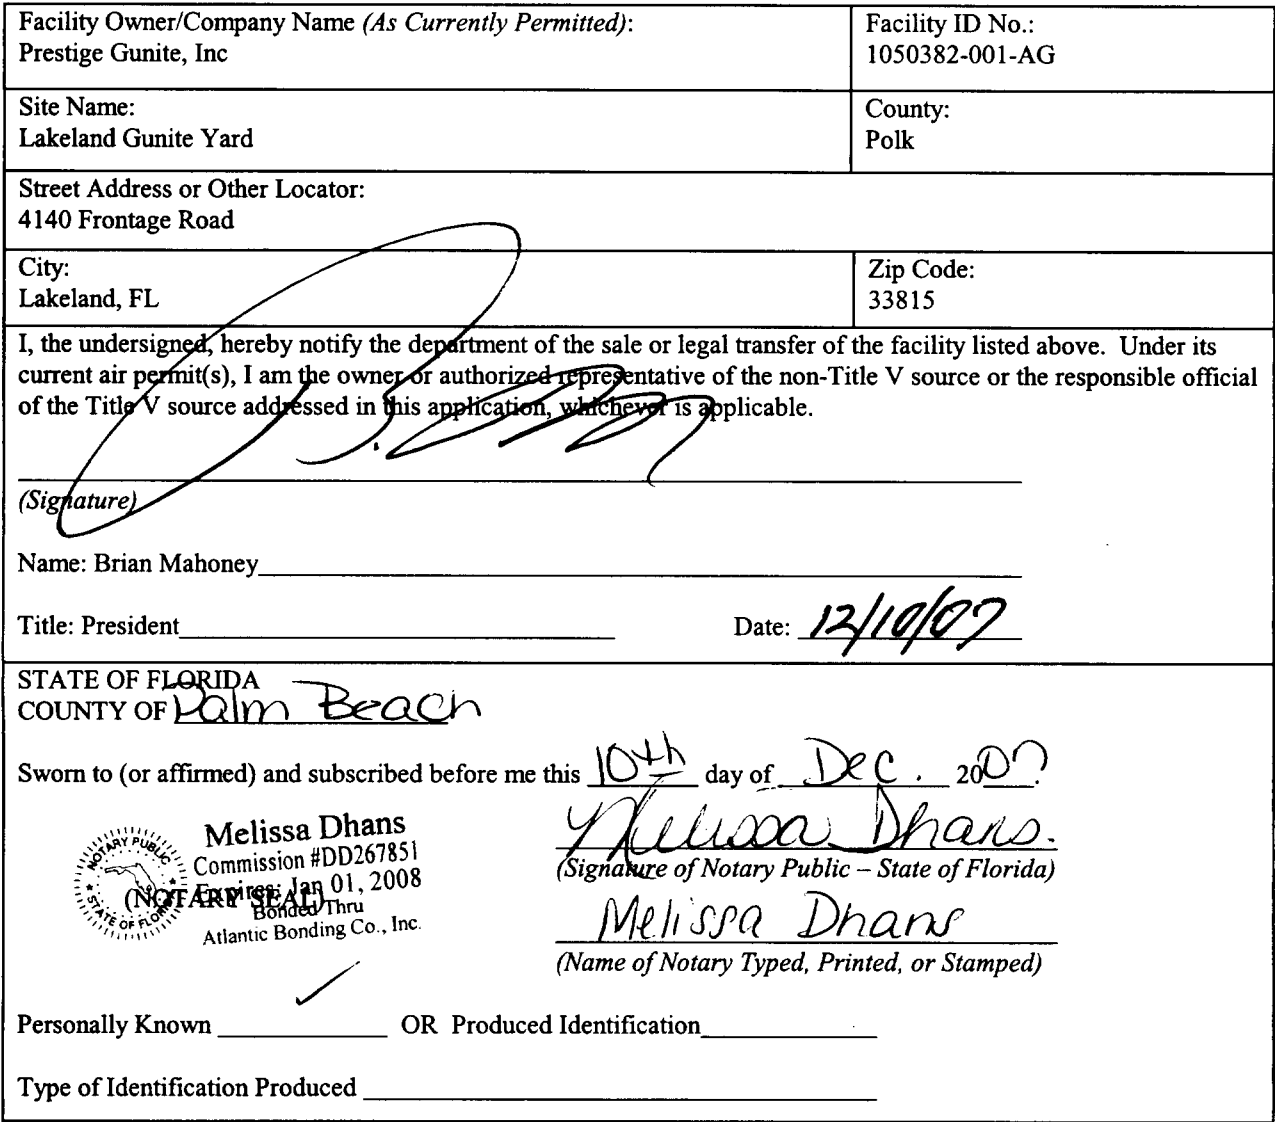 Facility Owner/Company Name (As Currently Permitted):
Prestige Gunite, Inc
Facility ID No.:
1050382-001-AG
Site Name:
Lakeland Gunite Yard
County:
Polk
Street Address or Other Locator:
4140 Frontage Road
City:
Lakeland, FL
Zip Code:
33815
I, the undersigned, hereby notify the department of the sale or legal transfer of the facility listed above. Under its
current air permit(s), I am the owner or authorized representative of the non-Title V source or the responsible official
of the Title V source addressed in this application, whichever is applicable.
(Signature)
Name: Brian Mahoney
Title: President
Date: 12/10/07
STATE OF FLORIDA
COUNTY OF Palm Beach
Sworn to (or affirmed) and subscribed before me this 10th day of Dec. 2007.
Melissa Dhans.
(Signature of Notary Public – State of Florida)
NOTARY PUBLIC
STATE OF FLORIDA
Melissa Dhans
Commission #DD267851
Expires: Jan 01, 2008
Bonded Thru
Atlantic Bonding Co., Inc.
(NOTARY SEAL)
Melissa Dhans
(Name of Notary Typed, Printed, or Stamped)
Personally Known ✓ OR Produced Identification
Type of Identification Produced